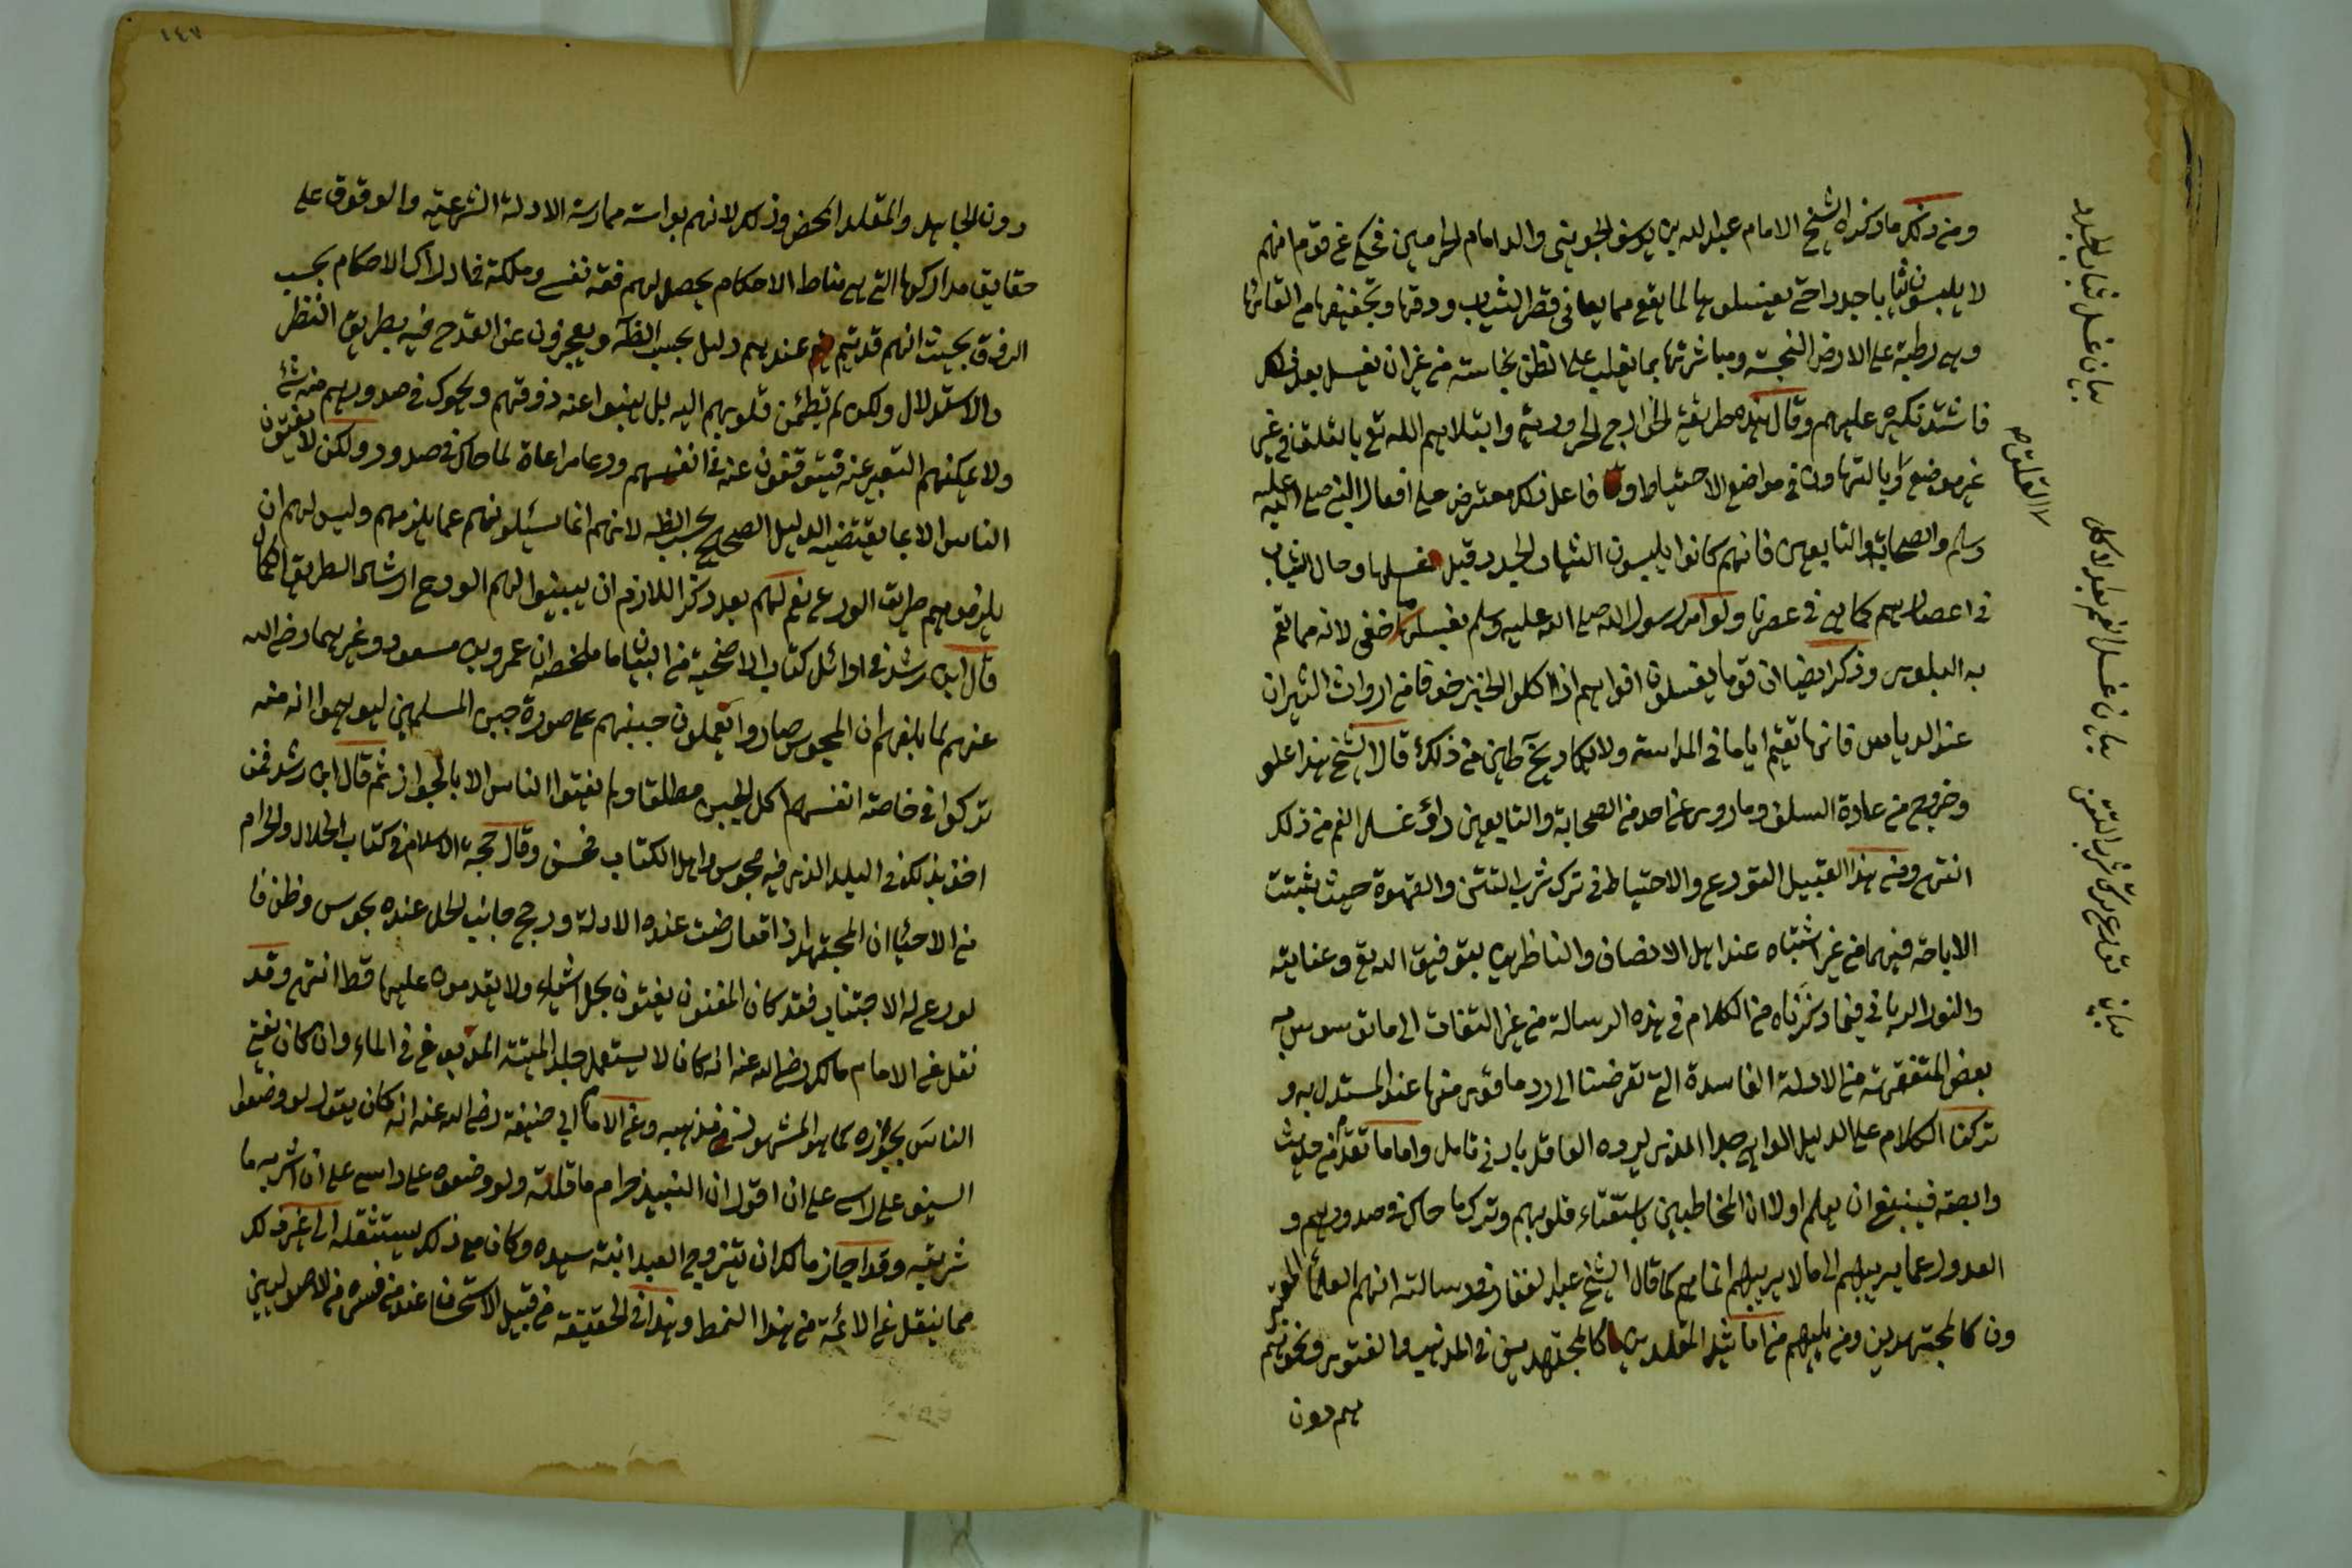 ومن ذلك ما ذكره الشيخ الامام عبد الله بن يوسف الجويني والد امام الحرامين فحكي عن قوم انهم
لا يلبسون ثيابا جددا حتى يغسلونها لما يقع مما يعاني قصر الثياب ودقها وتجفيفها من القائها
وهي رطبة على الارض النجسة ومباشرتها بما يغلب على الظن نجاسته من غير ان يغسل بعد ذلك
فاشتد نكيره عليهم وقال هذه طريقة الخوارج الحرورية وابتلاهم الله تع بالغلق في غير
غير موضع وبالتهاون في مواضع الاحتياط و فاعل ذلك معترض على افعال النبي صلى الله عليه
وسلم والصحابة والتابعين فانهم كانوا يلبسون الثياب الجدد قبل غسلها وحال الثياب
في اعصارهم كما هي في عصرنا ولو امر رسول الله صلى الله عليه وسلم بغسلها ما خفى لانه مما تعم
به البلوى وذكر ايضا ان قوما يغسلون افواههم اذا اكلوا الخبز خوفا من ارواث الثيران
عند الدياس فانها تقيم اياما في المداسة ولا يكاد يخ طحين من ذلك قال الشيخ هذا غلو
وخروج من عادة السلف وما روى عن احد من الصحابة والتابعين راى غسل الفم من ذلك
انتهى ومن هذا القبيل التورع والاحتياط في ترك شرب التتن والقهوة حيث ثبتت
الاباحة فيهما من غير اشتباه عند اهل الانصاف والناظرين بتوفيق الله تع وعنايته
والنور الرباني فيما ذكرناه من الكلام في هذه الرسالة من غير التفات الى ما توسوس به
بعض المتفقهة من الادلة الفاسدة التي تعرضنا الى رد ما قوى منها عند المستدل به و
تركنا الكلام على الدليل الواهي جدا الذي يرده العاقل بادنى تامل واما ما تقدم من حديث
وابصة فينبغي ان يعلم اولا ان المخاطبين باستفتاء قلوبهم وترك ما حاك في صدورهم و
العدول عما يريبهم الى ما لا يريبهم انما هم كما قال الشيخ عبد الغفار في رسالته انهم العلماء المعتبر
ون كالمجتهدين ومن يليهم من اماثل المقلدين كالمجتهدين في المذهب والفتوى ونحوهم
هم دون
بيان غسل ثياب الجدد
القلق
بيان غسل الفم بعد الاكل
بيان تورع ترك شرب التتن
١٤٧
دون الجاهل والمقلد المحض وذلك لانهم بواسته ممارسة الادلة الشرعية والوقوف على
حقايق مداركها التي هي مناط الاحكام يحصل لهم فقه نفسي وملكة في ادراك الاحكام بحسب
الذوق بحيث انهم قد يتم عندهم دليل بحسب الظاهر ويعجزون عن القدح فيه بطريق النظر
والاستدلال ولكن لم تطمئن قلوبهم اليه بل ينبوا عنه ذوقهم ويحوك في صدورهم منه شئ
ولا يمكنهم التعبير عنه فيتوقفون عنه في انفسهم ورعا مراعاة لما حاك في صدور ولكن لا يفتون
الناس الا بما يقتضيه الدليل الصحيح بحسب الظه لانهم انما يسئلونهم عما يلزمهم وليس لهم ان
يلزموهم طريق الورع نعم لهم بعد ذكر اللازم ان يبينوا لهم الورع ارشادا لطريق الكمال
قال ابن رشد في اوائل كتاب الاضحية من البيان ما ملخصه ان عمر وبن مسعود وغيرهما رضي الله
عنهم لما بلغهم ان المجوس صاروا يعملون جبنهم على صورة جبن المسلمين ليوهموا انه منه
تركوا في خاصة انفسهم اكل الجبن مطلقا ولم يفتوا الناس الا بالجواز ثم قال ابن رشد فمن
اخذ بذلك في البلد الذي فيه مجوس واهل الكتاب فحسن وقال حجة الاسلام في كتاب الحلال والحرام
من الاحياء ان المجتهد اذا تعارضت عنده الادلة ورجح جانب الحل عنده بحدس وظن فا
لورع له الاجتناب فقد كان المفتون يفتون بحل اشياء ولا يقدمون عليها قط انتهى وقد
نقل عن الامام مالك رضي الله عنه انه كان لا يستعمل جلد الميتة المدبوغ في الماء وان كان يفتي
الناس بجوازه كما هو المشهور في مذهبه وعن الامام ابي حنيفة رضي الله عنه انه كان يقول لو وضعوا
السيف على راسي على ان اقول ان النبيذ حرام ما قلته ولو وضعوه على راسي على ان اشربه ما
شربته وقد اجاز مالك ان يتزوج العبد ابنة سيده وكان مع ذلك يستثقله الى غير ذلك
مما ينقل عن الائمة من هذا النمط وهذا في الحقيقة من قبيل الاستحسان عند من فسره من الاصوليين